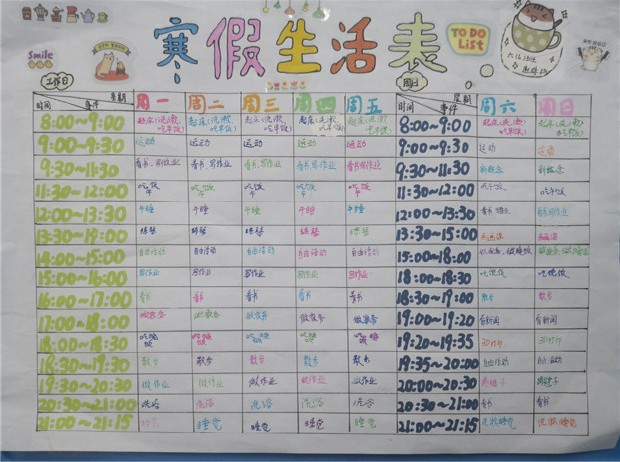 寒假生活表
Smile
TO DO
LiST
工作日
周日
星期 事件 时间 周一 周二 周三 周四 周五 星期 事件 时间 周六 周日
8:00~9:00 起床(洗漱、吃早饭) 起床(洗漱、吃早饭) 起床(洗漱、吃早饭) 起床(洗漱、吃早饭) 起床(洗漱、吃早饭) 8:00~9:00 起床(洗漱、吃早饭) 起床(洗漱、吃早饭)
9:00~9:30 运动 运动 运动 运动 运动 9:00~9:30 运动 运动
9:30~11:30 看书、写作业 看书、写作业 看书、写作业 看书、写作业 看书、写作业 9:30~11:30 新概念 新概念
11:30~12:00 吃午饭 吃午饭 吃午饭 吃午饭 吃午饭 11:30~12:00 吃午饭 吃午饭
12:00~13:30 午睡 午睡 午睡 午睡 午睡 12:00~13:30 看书
13:30~14:00 练琴 练琴 练琴 练琴 练琴 13:30~15:00
14:00~15:00 自由活动 自由活动 自由活动 自由活动 自由活动 15:00~18:00
15:00~16:00 写作业 写作业 写作业 写作业 写作业 18:00~18:30 吃晚饭 吃晚饭
16:00~17:00 看书 看书 看书 看书 看书 18:30~19:00 散步 散步
17:00~18:00 做家务 做家务 做家务 做家务 做家务 19:00~19:20 看新闻 看新闻
18:00~18:30 吃晚饭 吃晚饭 吃晚饭 吃晚饭 吃晚饭 19:20~19:35
18:30~19:30 散步 散步 散步 散步 散步 19:35~20:00 自由活动 自由活动
19:30~20:30 做作业 做作业 做作业 做作业 做作业 20:00~20:30
20:30~21:00 洗浴 洗浴 洗浴 洗浴 洗浴 20:30~21:00 看书 看书
21:00~21:15 睡觉 睡觉 睡觉 睡觉 睡觉 21:00~21:15 洗漱睡觉 洗漱睡觉